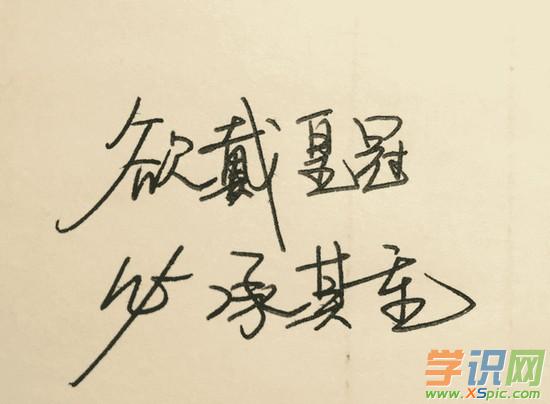 欲戴皇冠
必承其重
学识网
www.XSpic.com